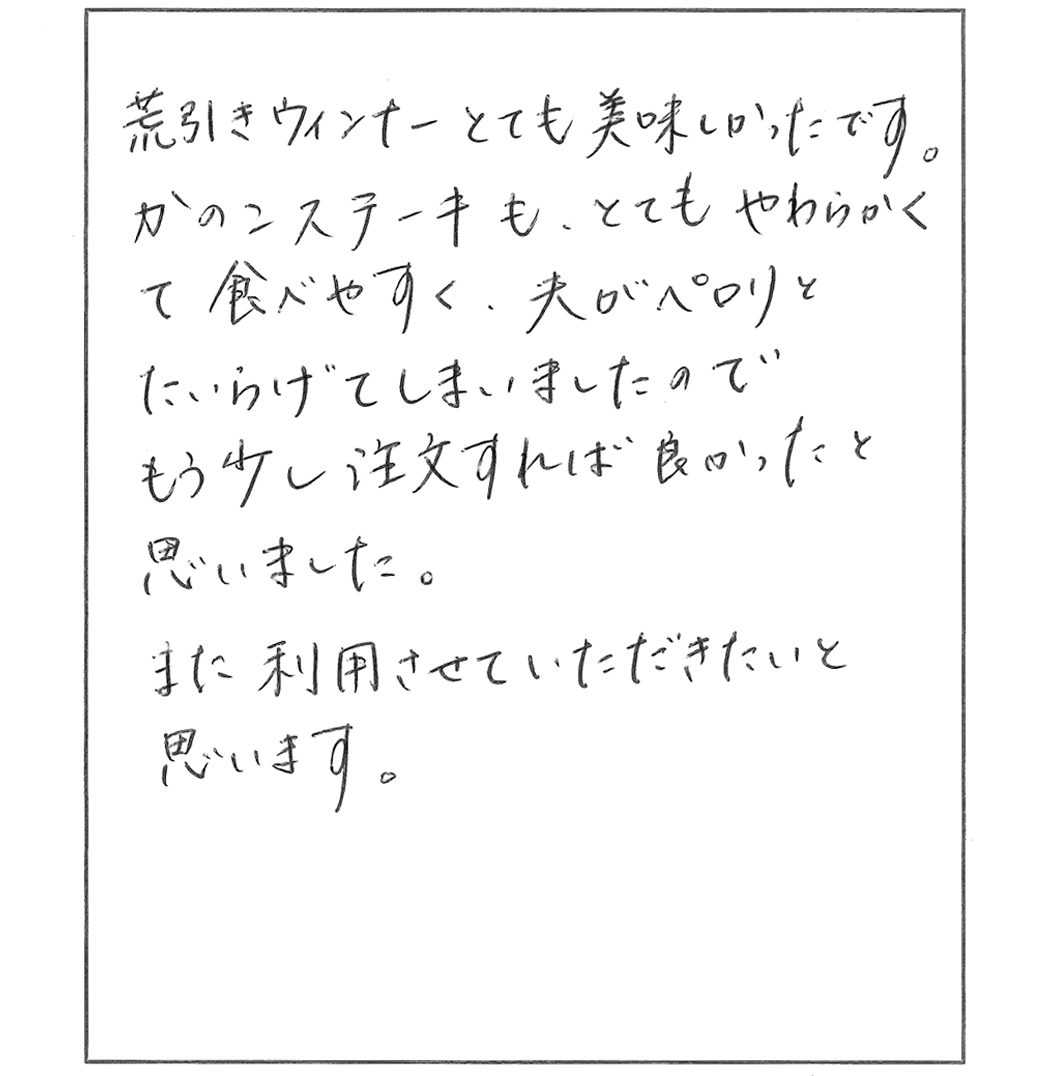 荒引きウィンナーとても美味しかったです。
かのこステーキも、とてもやわらかく
て食べやすく、夫がペロリと
たいらげてしまいましたので
もう少し注文すれば良かったと
思いました。
また利用させていただきたいと
思います。